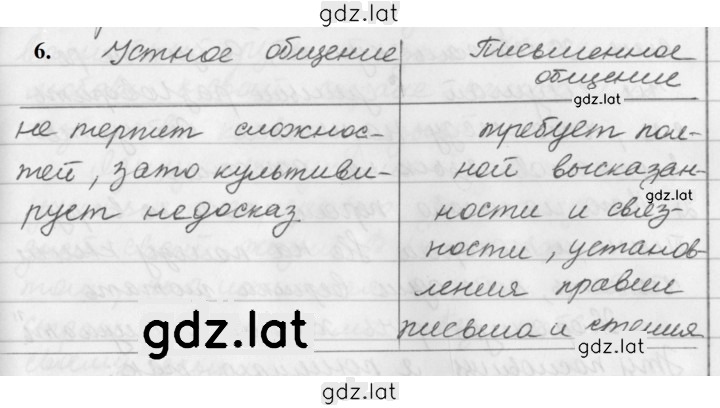 gdz.lat
6. Устное общение
Письменное
общение
gdz.lat
не терпит сложнос-
тей, зато культиви-
рует недосказ.
требует пол-
ной высказан-
gdz.lat
ности и связ-
ности, установ-
ления правил
письма и чтения
gdz.lat
gdz.lat
gdz.lat